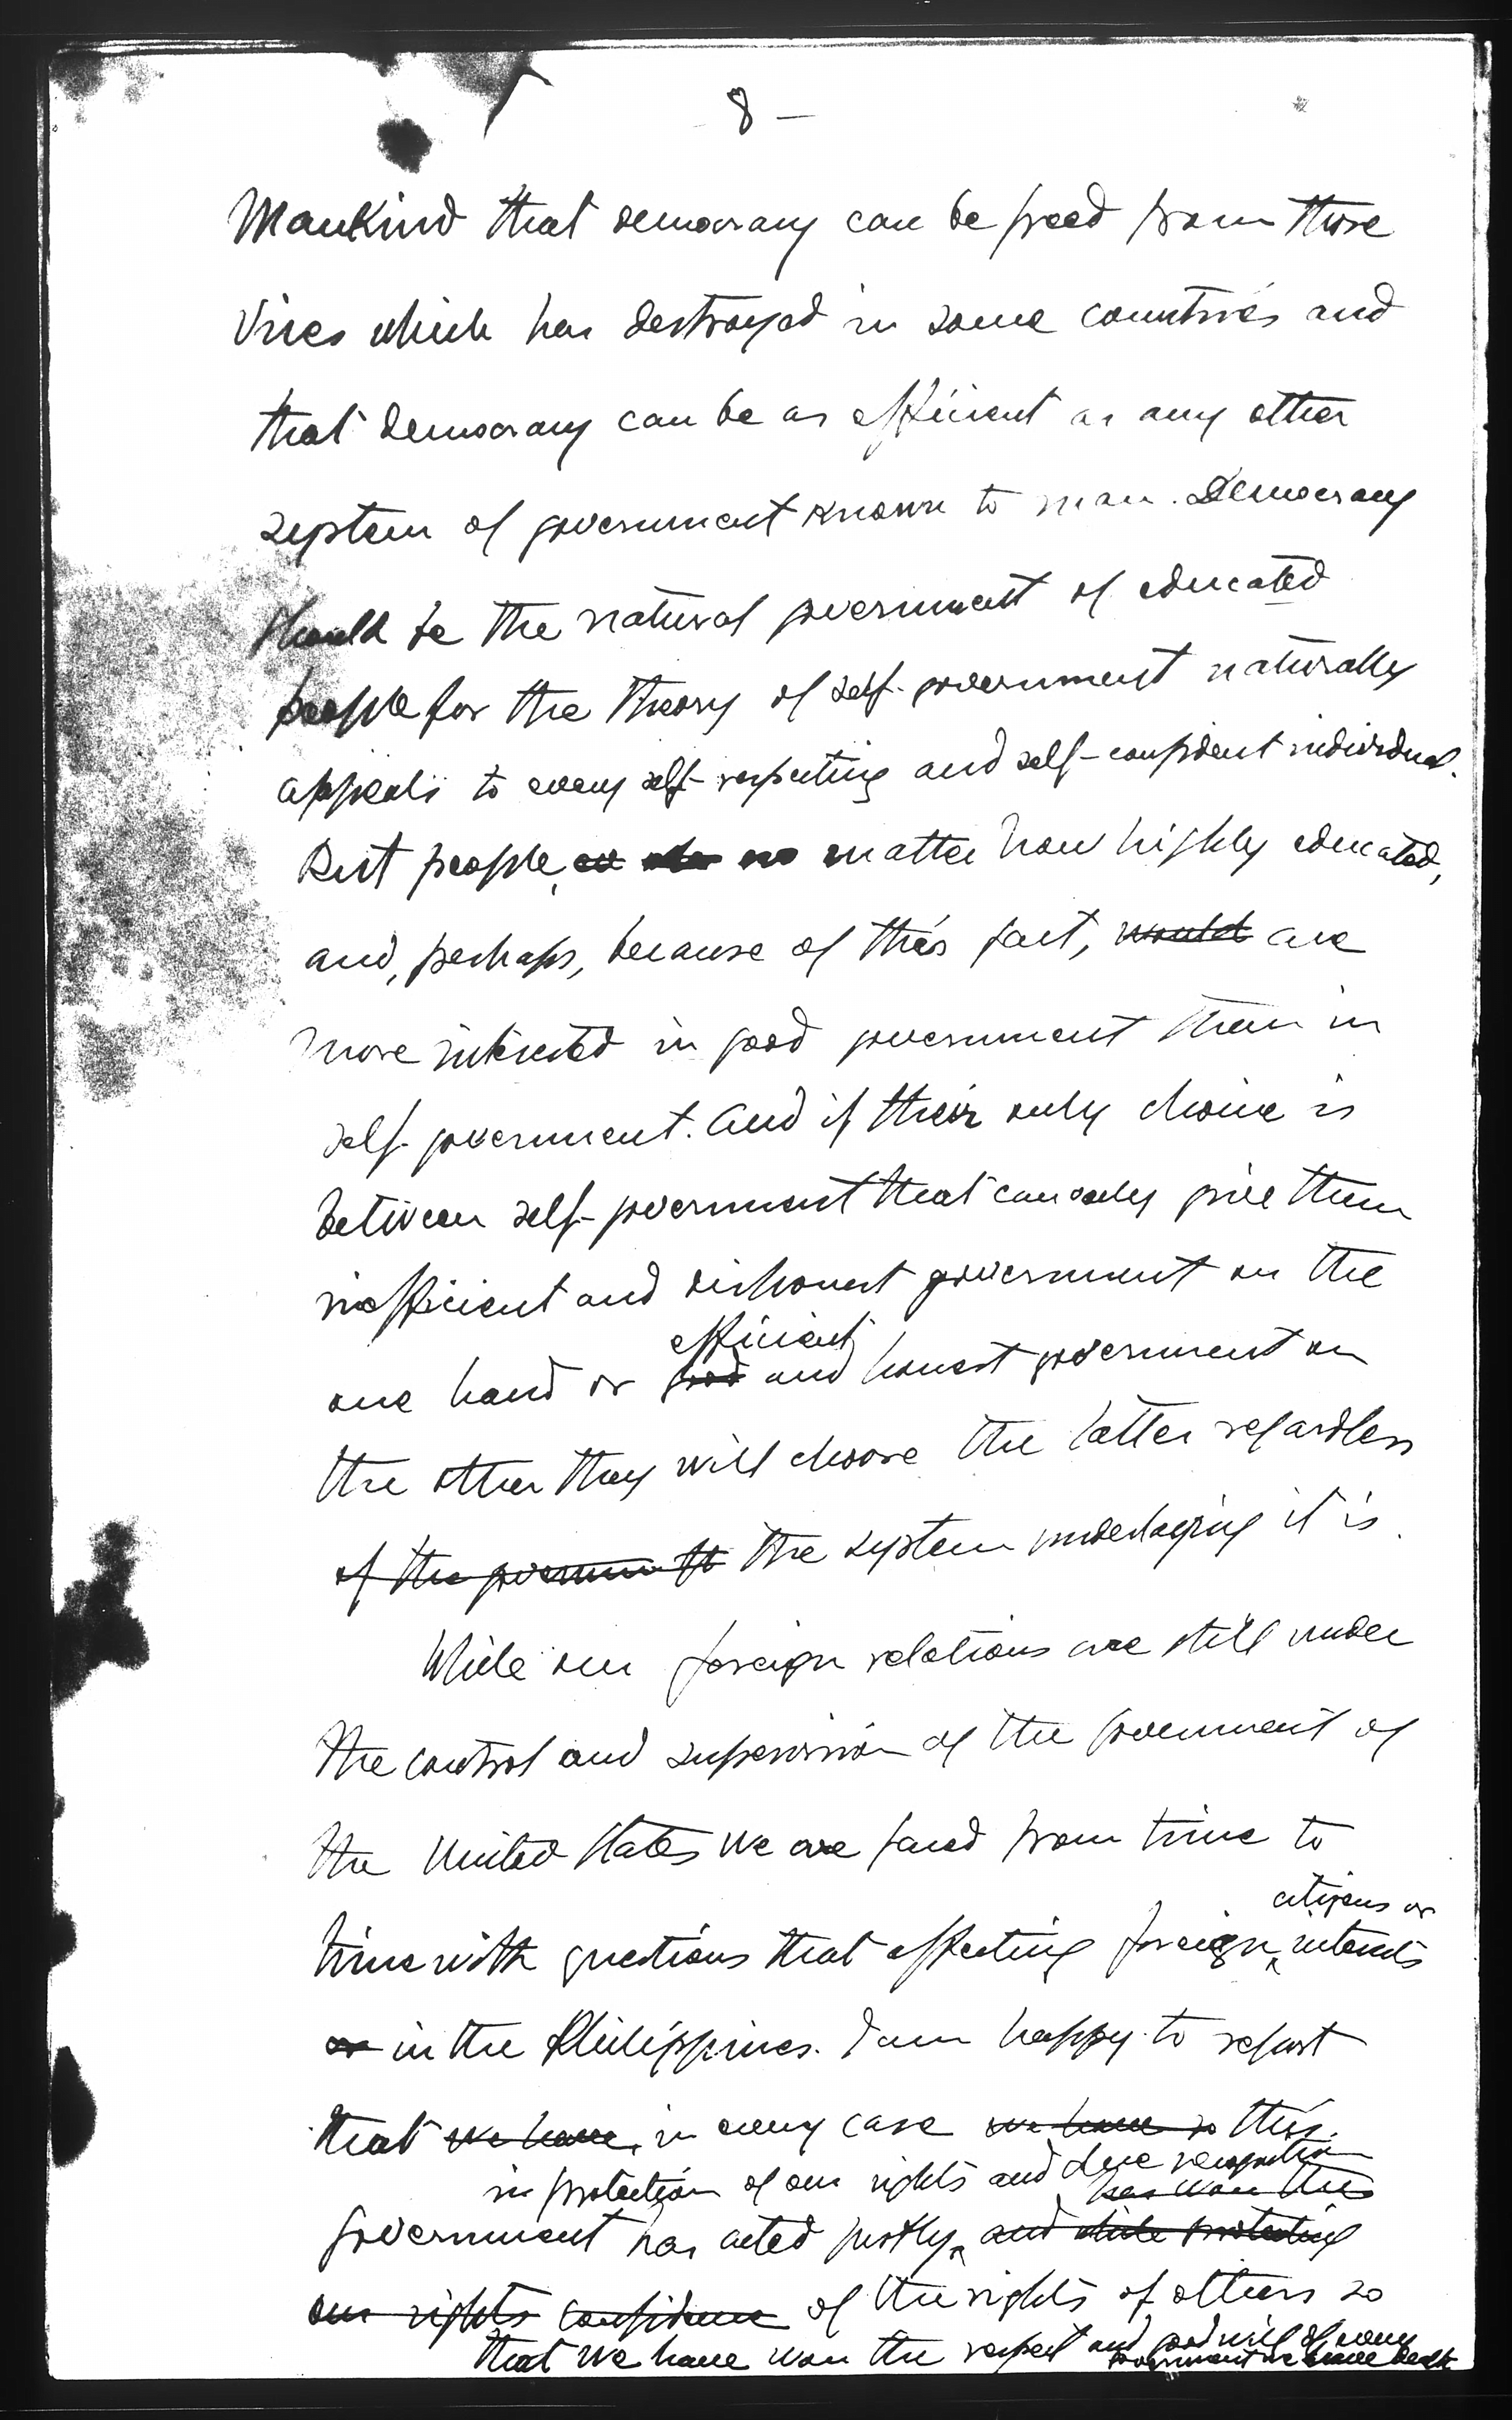 8 –
Mankind that democracy can be freed from those
vices which has destroyed in some countries and
that democracy can be as efficient as any other
system of government known to man. Democracy
should be the natural government of educated
people for the theory of self-government naturally
appeals to every self-respecting and self-confident individual.
But people, no matter how highly educated,
and, perhaps, because of this fact, would are
more interested in good government than in
self-government. And if their only choice is
between self-government that can only give them
inefficient and dishonest government on the
efficient
one hand or good and honest government on
the other they will choose the latter regardless
of the government the system underlaying it is.
While our foreign relations are still under
the control and supervision of the government of
the United States we are faced from time to
citizens or
time with questions that affecting foreign interests
or in the Philippines. I am happy to report
that we have, in every case we have so this
in protection of our rights and due recognition
has won the
government has acted justly, and while protecting
our rights confidence of the rights of others so
that we have won the respect and good will of every
government we have dealt